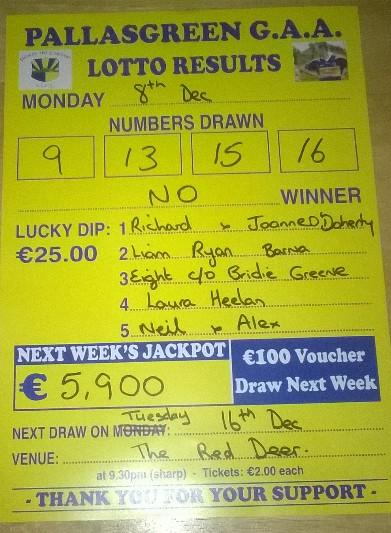 PALLASGREEN G.A.A.
LOTTO RESULTS
MONDAY 8th Dec
NUMBERS DRAWN
9 13 15 16
NO WINNER
LUCKY DIP: 1 Richard & Joanne O'Doherty
€25.00 2 Liam Ryan Barna
3 Eight c/o Bridie Greene
4 Laura Heelan
5 Neil & Alex
NEXT WEEK'S JACKPOT
€ 5,900
€100 Voucher
Draw Next Week
Tuesday
NEXT DRAW ON MONDAY: 16th Dec
VENUE: The Red Deer.
at 9.30pm (sharp) - Tickets: €2.00 each
- THANK YOU FOR YOUR SUPPORT -